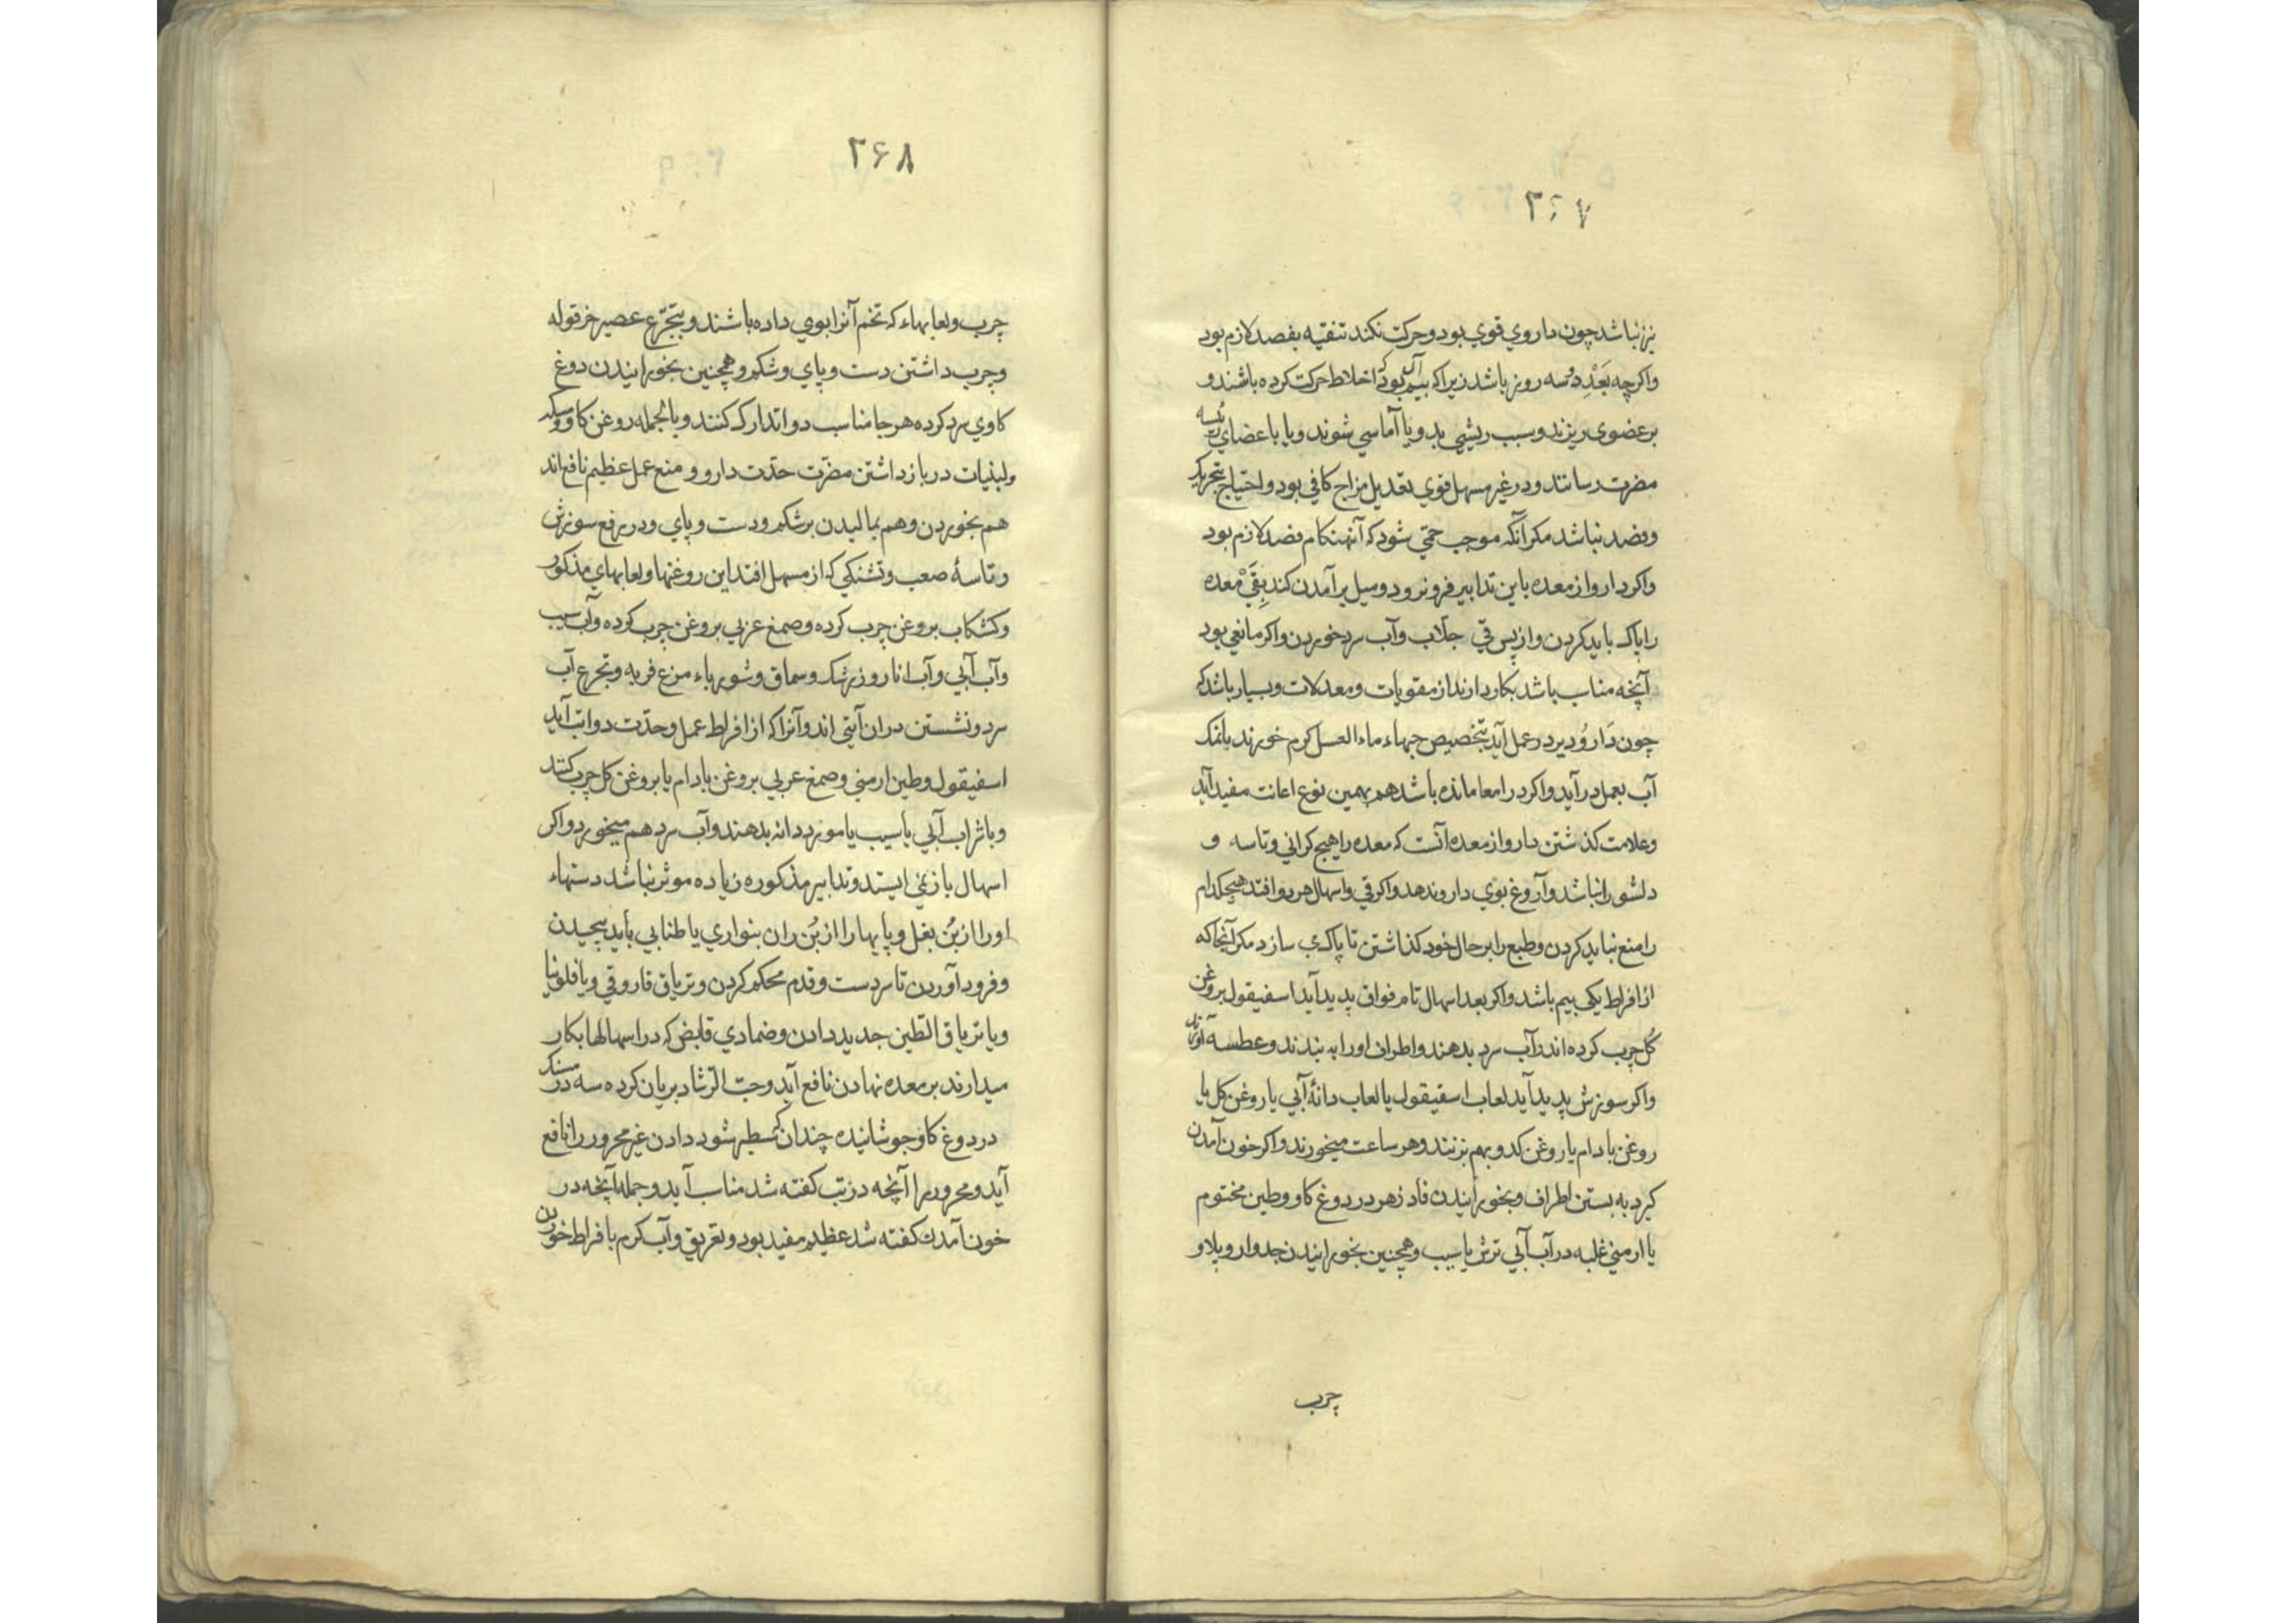 ۲۶۷
نیز نباشد چون داروی قوی بود و حرکت نکند تنقیه بفصد لازم بود
واکرچه بَعْدِ دُسه روز باشد زیرا که بیم آن بود که اخلاط حرکت کرده باشند و
بر عضوی ریزند و سبب ریشی بد و یا آماسی شوند و یا باعضای رئیسه
مضرت رسانند و در غیر مسهل قوی تعدیل مزاج کافی بود و احتیاج بتحریک
وفصد نباشد مکر آنکه موجب حمّی شود که آنهنکام فصد لازم بود
واکر دارو از معده باین تدابیر فرو نرود و میل برآمدن کند بِقَیْ معده
را پاک باید کردن و از پس قی جلاب و آب سرد خوردن واکر مانعی بود
آنچه مناسب باشد بکار دارند از مقویات و معدلات و بسیار باشد که
چون دَارُو دیر در عمل آید بتخصیص حبهاء ماء العسل کرم خورند یا نمک
آب بعمل درآید واکر در امعا مانده باشد هم بهمین نوع اعانت مفید آید
وعلامت کذشتن دارو از معده آنست که معده را هیچ کرانی و تاسه و
دلشورا نباشد و آروغ بوی دارو ندهد واکر قی واسهال هر دو افتد هیچکدام
را منع نباید کردن و طبع را بر حال خود کذاشتن تا پاکی سازد مکر آنجا که
از افراط یکی بیم باشد واکر بعد اسهال تام فواق پدید آید اسفیقول بروغن
کُل چرب کرده اندر آب سرد بدهند و اطراف او را به بندند و عطسه آورند
واکر سوزش پدید آید لعاب اسفیقول یا لعاب دانهٔ آبی یا روغن کل یا
روغن بادام یا روغن کدو بهم بزنند و هر ساعت میخورند واکر خون آمدن
کیرد به بستن اطراف و بخورانیدن فادزهر در دوغ کاو و طین مختوم
یا ارمنی غلبه در آب آبی ترش یا سیب و همچنین بخورانیدن جدوار و پلاو
چرب
۲۶۸
چرب و لعابهاء که تخم آنرا بوی داده باشند و بتجرّع عصیر خرفوله
وچرب داشتن دست و پای و شکم و همچنین بخورانیدن دوغ
کاوی سرد کرده هر جا مناسب دواتدارک کنند و بالجمله روغن کاو و مسکه
ولبنیات در بازداشتن مضرّت حدّت دارو و منع عمل عظیم نافع اند
هم بخوردن و هم بمالیدن بر شکم و دست و پای و در رفع سوزش
و تاسهٔ صعب و تشنکی که از مسهل افتد این روغنها و لعابهای مذکور
وکشکاب بروغن چرب کرده و صمغ عربی بروغن چرب کرده و آب سیب
وآب آبی وآب انار و زرشک و سماق و شورباء مرغ فربه و تجرع آب
سرد و نشستن در ان آیتی اند وآنرا که از افراط عمل و حدّت دوا تب آید
اسفیقول و طین ارمنی و صمغ عربی بروغن بادام یا بروغن کل چرب کنند
وبا شراب آبی یا سیب یا مورد دانه بدهند و آب سرد هم میخورد واکر
اسهال باز نمی ایستد و تدابیر مذکوره زیاده موثر نباشد دستهاء
او را از بُن بغل و پایها را از بُن ران بنواری یا طنابی باید پیچیدن
و فرود آوردن تا سر دست و قدم محکم کردن و تریاق فاروقی و یا فلونیا
ویا تریاق الطین جدید دادن و ضمادی قابض که در اسهالها بکار
میدارند بر معده نهادن نافع آید و حبّ الرشاد بریان کرده سه درمسنک
در دوغ کاو جوشانیده چندان که سطبر شود دادن غیر محرور را نافع
آید و محرور را آنچه در تب کفته شد مناسب آید و جمله آنچه در
خون آمدن کفته شد عظیم مفید بود و تعریق و آب کرم بافراط خوردن